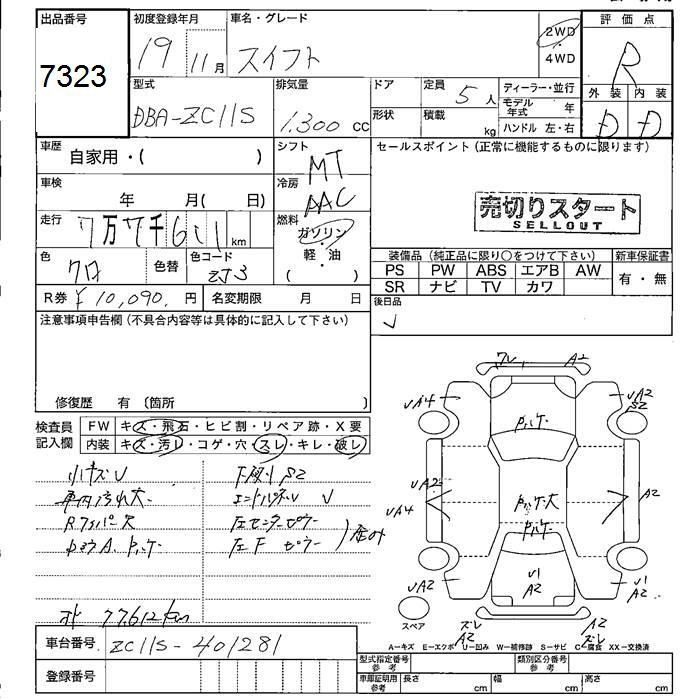 出品番号 初度登録年月 車名・グレード 2WD 評価点
7323 19 11月 スイフト 4WD R
型式 排気量 ドア 定員 5人 ディーラー・並行 外装 内装
DBA-ZC11S 1.300cc 形状 積載 kg モデル年式 年 D D
ハンドル 左・右
車歴 自家用・( ) シフト MT セールスポイント(正常に機能するものに限ります)
車検 年 月( 日) 冷房 AAC
売切りスタート
SELLOUT
走行 7万7千611km 燃料 ガソリン・軽・油
( )
色 クロ 色替 色コード ZJ3
装備品(純正品に限り○をつけて下さい) 新車保証書
PS PW ABS エアB AW 有・無
SR ナビ TV カワ
R券 ¥10,090.円 名変期限 月 日 後日品
注意事項申告欄(不具合内容等は具体的に記入して下さい)
修復歴 有 〔箇所 〕
検査員記入欄 FW キズ・飛石・ヒビ割・リペア跡・X要
内装 キズ・汚レ・コゲ・穴・スレ・キレ・破レ
小キズU 下廻りS2
車内汚れ大 エンドパネルU
Rワイパー欠 左センターピラー
左Fピラー
77612km
車台番号 ZC11S-401281
登録番号
ワレ A2
UA4 UA2
S2
UA2
UA4 A2
UA2 U1
A2
U1
A2
スペア ズレ A2
A2 ズレ
A-キズ E-エクボ U-凹み W-補修跡 S-サビ C-腐食 XX-交換済
型式指定番号 参考 類別区分番号 参考
車庫証明用 参考 長さ cm 幅 cm 高さ cm